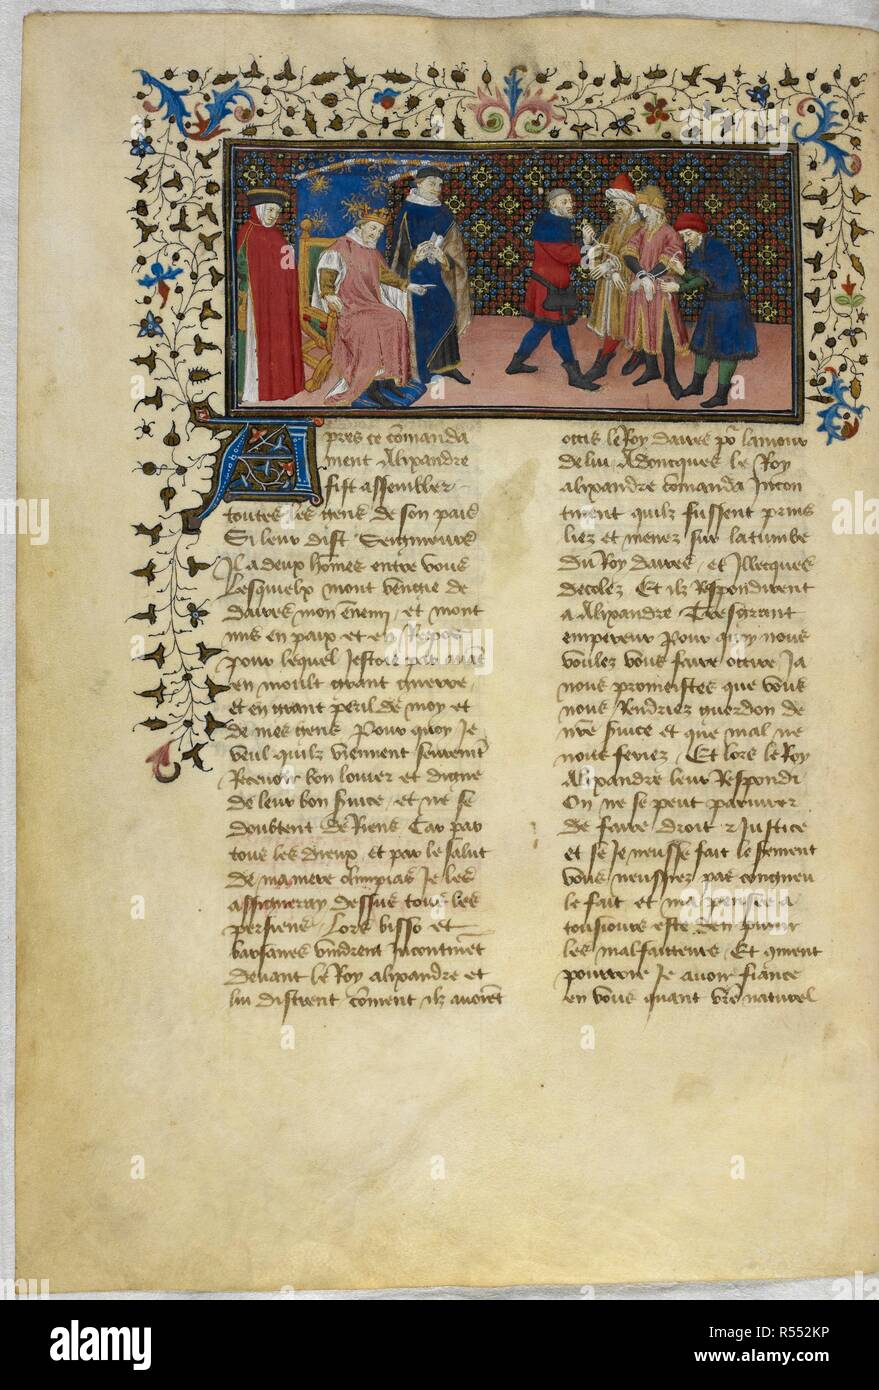 Apres ce comanda
ment Alixandre
fist assembler
toutes les gens de son pais
Si leur dist Seigneurs
Il a deux homes entre vous
Lesquielx mont vengie de
daires mon enemi, et mont
mis en paix et en Repos
pour lequel Jestoie par avant
en moult grant guerre,
et en grant peril de moy et
de mes gens Pour quoy Je
veul quilz viennent seurement
Recevoir bon louier et digne
de leur bon service, et ne se
doubtent de Riens Car par
tous les dieux, et par le salut
de ma mere olimpias Je les
assigneray dessus tous les
persiens, Lors bisso et
barsanes vindrent Incontinent
devant le Roy alixandre et
lui distrent coment ilz avoient
occis le Roy daires por lamour
de lui, Adoncques le Roy
alixandre comanda Incon
tinent quilz fussent prins
liez et menez sur la tumbe
du Roy daires, et Illecques
decolez Et ilz Respondirent
a Alixandre Tresgrant
empereur Pour quoy nous
voulez vous faire occire, Ja
nous promeistes que vous
nous Rendriez guerdon de
nostre service et que mal ne
nous feriez, Et lors le Roy
Alixandre leur Respondi
On ne se peut parjurer
de faire droit & Justice
et se Je neusse fait le serment
vous neussiez pas congneu
le fait et ma pensee a
tousiours este den punir
les malfaiteurs, Et coment
pourroie Je avoir fiance
en vous quant vostre naturel
alamy
Image ID: R552KP
www.alamy.com